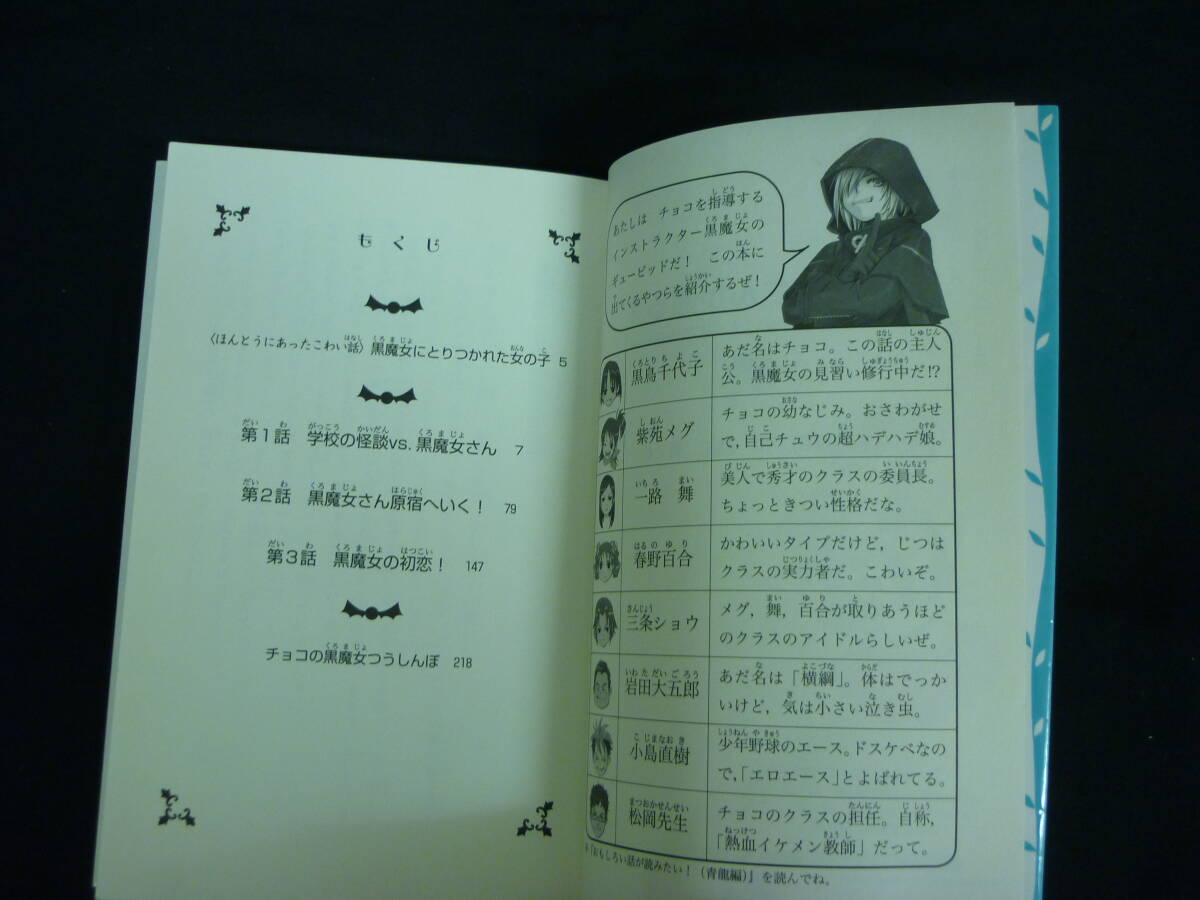 もくじ
〈ほんとうにあったこわい話〉黒魔女にとりつかれた女の子 5
第1話 学校の怪談vs.黒魔女さん 7
第2話 黒魔女さん原宿へいく! 79
第3話 黒魔女の初恋! 147
チョコの黒魔女つうしんぼ 218
あたしは チョコを指導する
インストラクター黒魔女の
ギュービッドだ! この本に
出てくるやつらを紹介するぜ!
黒鳥千代子
あだ名はチョコ。この話の主人
公。黒魔女の見習い修行中だ!?
紫苑メグ
チョコの幼なじみ。おさわがせ
で,自己チュウの超ハデハデ娘。
一路 舞
美人で秀才のクラスの委員長。
ちょっときつい性格だな。
春野百合
かわいいタイプだけど,じつは
クラスの実力者だ。こわいぞ。
三条ショウ
メグ,舞,百合が取りあうほど
のクラスのアイドルらしいぜ。
岩田大五郎
あだ名は「横綱」。体はでっか
いけど,気は小さい泣き虫。
小島直樹
少年野球のエース。ドスケベなの
で,「エロエース」とよばれてる。
松岡先生
チョコのクラスの担任。自称,
「熱血イケメン教師」だって。
『おもしろい話が読みたい!(青龍編)』を読んでね。